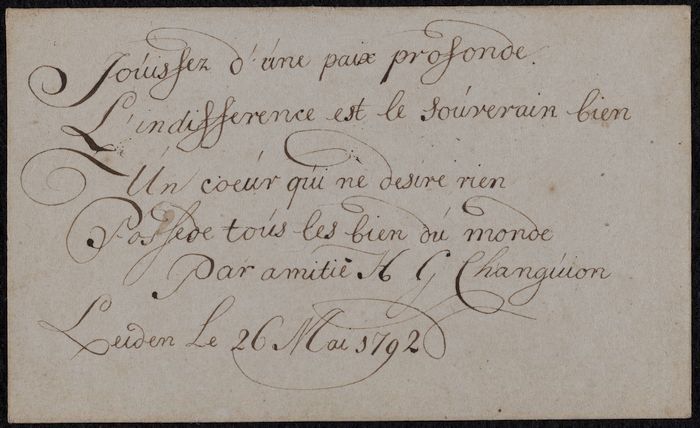 Joúissez d'úne paix profonde.
L'indifference est le soúverain bien
Ún coeúr qúi ne desire rien
Possede toús les bien dú monde
Par amitié H G Changúion
Leiden Le 26 Mai 1792